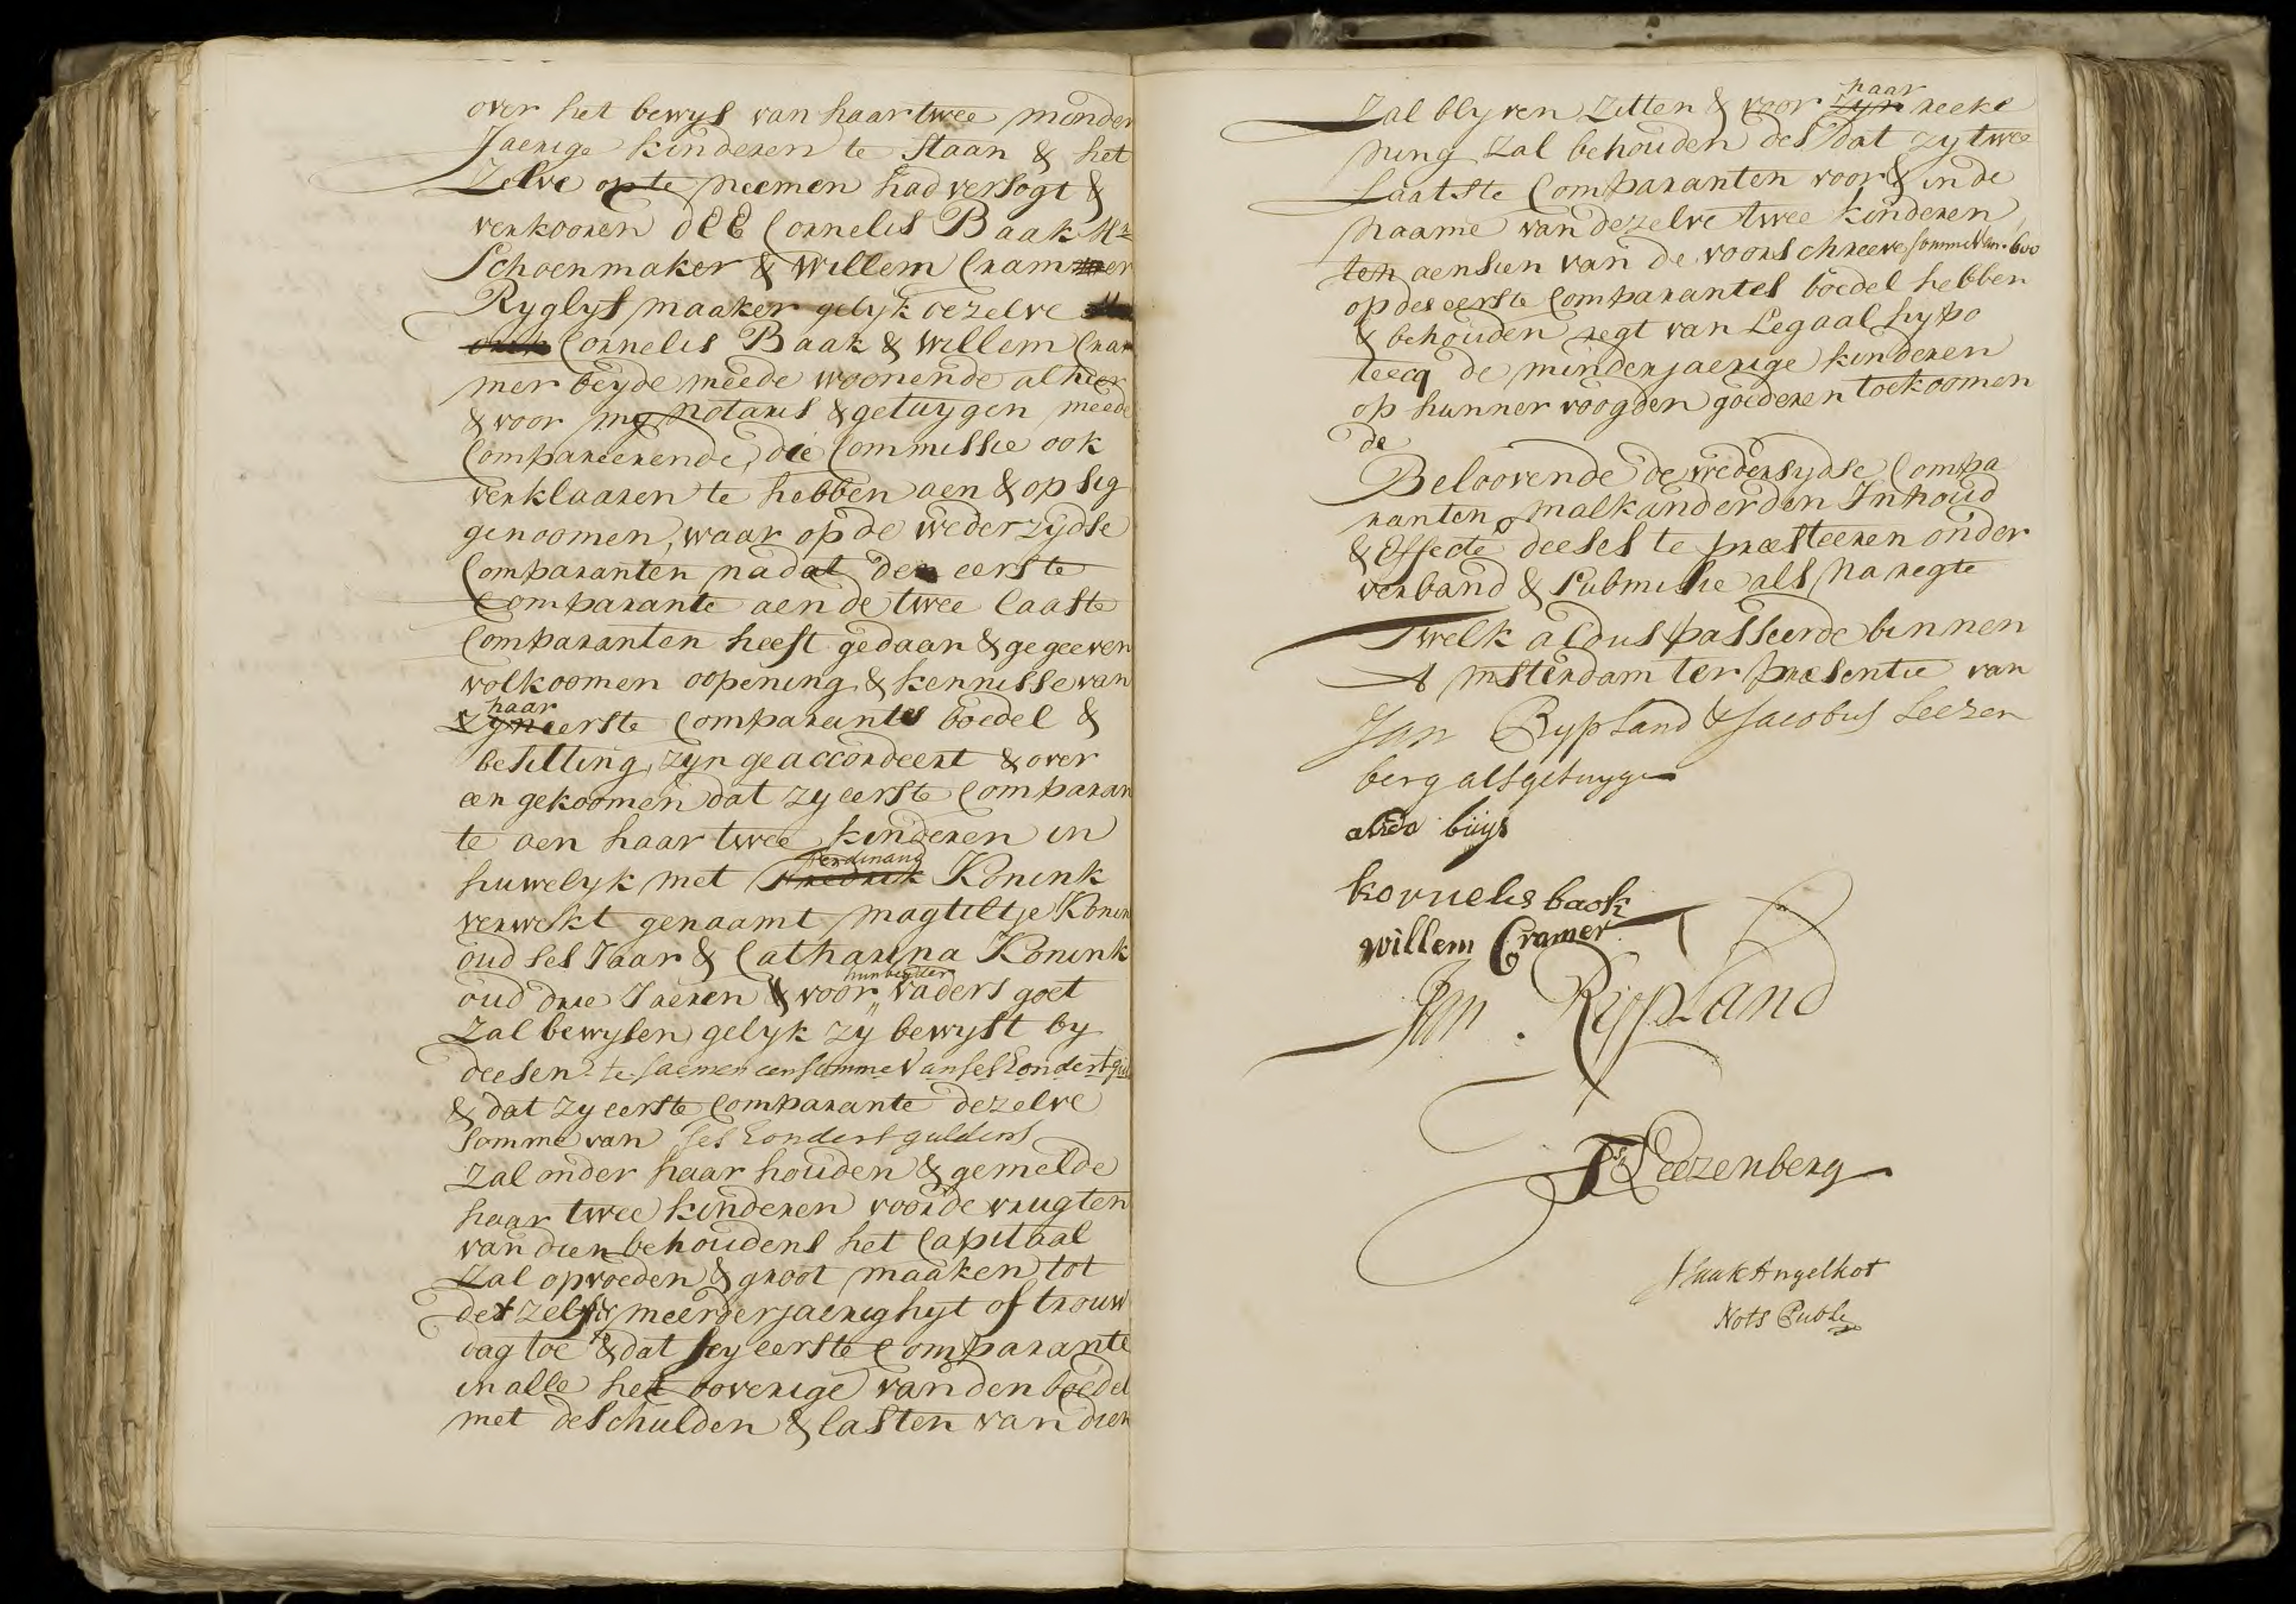 over het bewys van haar twee minder
Jaerige kinderen te staan & het
Zelve op te neemen had versogt &
verkooren dEE Cornelis Baak Mr
Schoenmaker & Willem Cramer
Ryglyf maaker gelyk dezelve
Cornelis Baak & Willem Cram
mer beyde meede woonende alhier
& voor my notaris & getuygen meede
Compareerende, die Commissie ook
verklaaren te hebben aen & op sig
genoomen, waar op de wederzydse
Comparanten nadat de eerste
Comparante aen de twee laaste
Comparanten heeft gedaan & gegeeven
volkoomen oopening & kennisse van
haar
zyn eerste Comparantes boedel &
besitting, zyn geaccordeert & over
een gekoomen dat zy eerste Comparan
te aen haar twee kinderen in
ferdinand
huwelyk met Fredrik Konink
verwekt genaamt magteltje Konin
oud ses Jaar & Catharina Konink
hun beyder
oud drie Jaeren & voor vaders goet
Zal bewysen gelyk zy bewyst by
deesen te saemen een somme van ses hondert gul
& dat zy eerste Comparante dezelve
somme van ses hondert guldens
Zal onder haar houden & gemelde
haar twee kinderen voor de vrugten
van dien behoudens het Capitaal
Zal opvoeden & groot maaken tot
det zelfs meerderjaerighyt of trouw
dag toe & dat sy eerste Comparante
in alle het overige van den boedel
met de schulden & lasten van dien
haar
Zal blyven Zitten & voor zyn reeke
ning zal behouden des dat zy twee
Laatste Comparanten voor & in de
naame van dezelve twee kinderen
ten aensien van de voorschreeve somme van 600
op des eerste Comparantes boedel hebben
& behouden regt van Legaal hypo
teecq de minderjaerige kinderen
op hunner voogden goederen toekoomen
de
Beloovende de wedersydse Compa
ranten malkander den Inhoud
& Effecte deeses te præsteeren onder
verband & Submissie als na regte
Twelk aldus passeerde binnen
Amsterdam ter præsentie van
Jan Rypland & Jacobus Leezen
berg als getuyge
alida buys
kornelis baak
willem Cramer
Jan. Rijpland
Js Leezenberg
Isaak Angelkot
Nots Publ